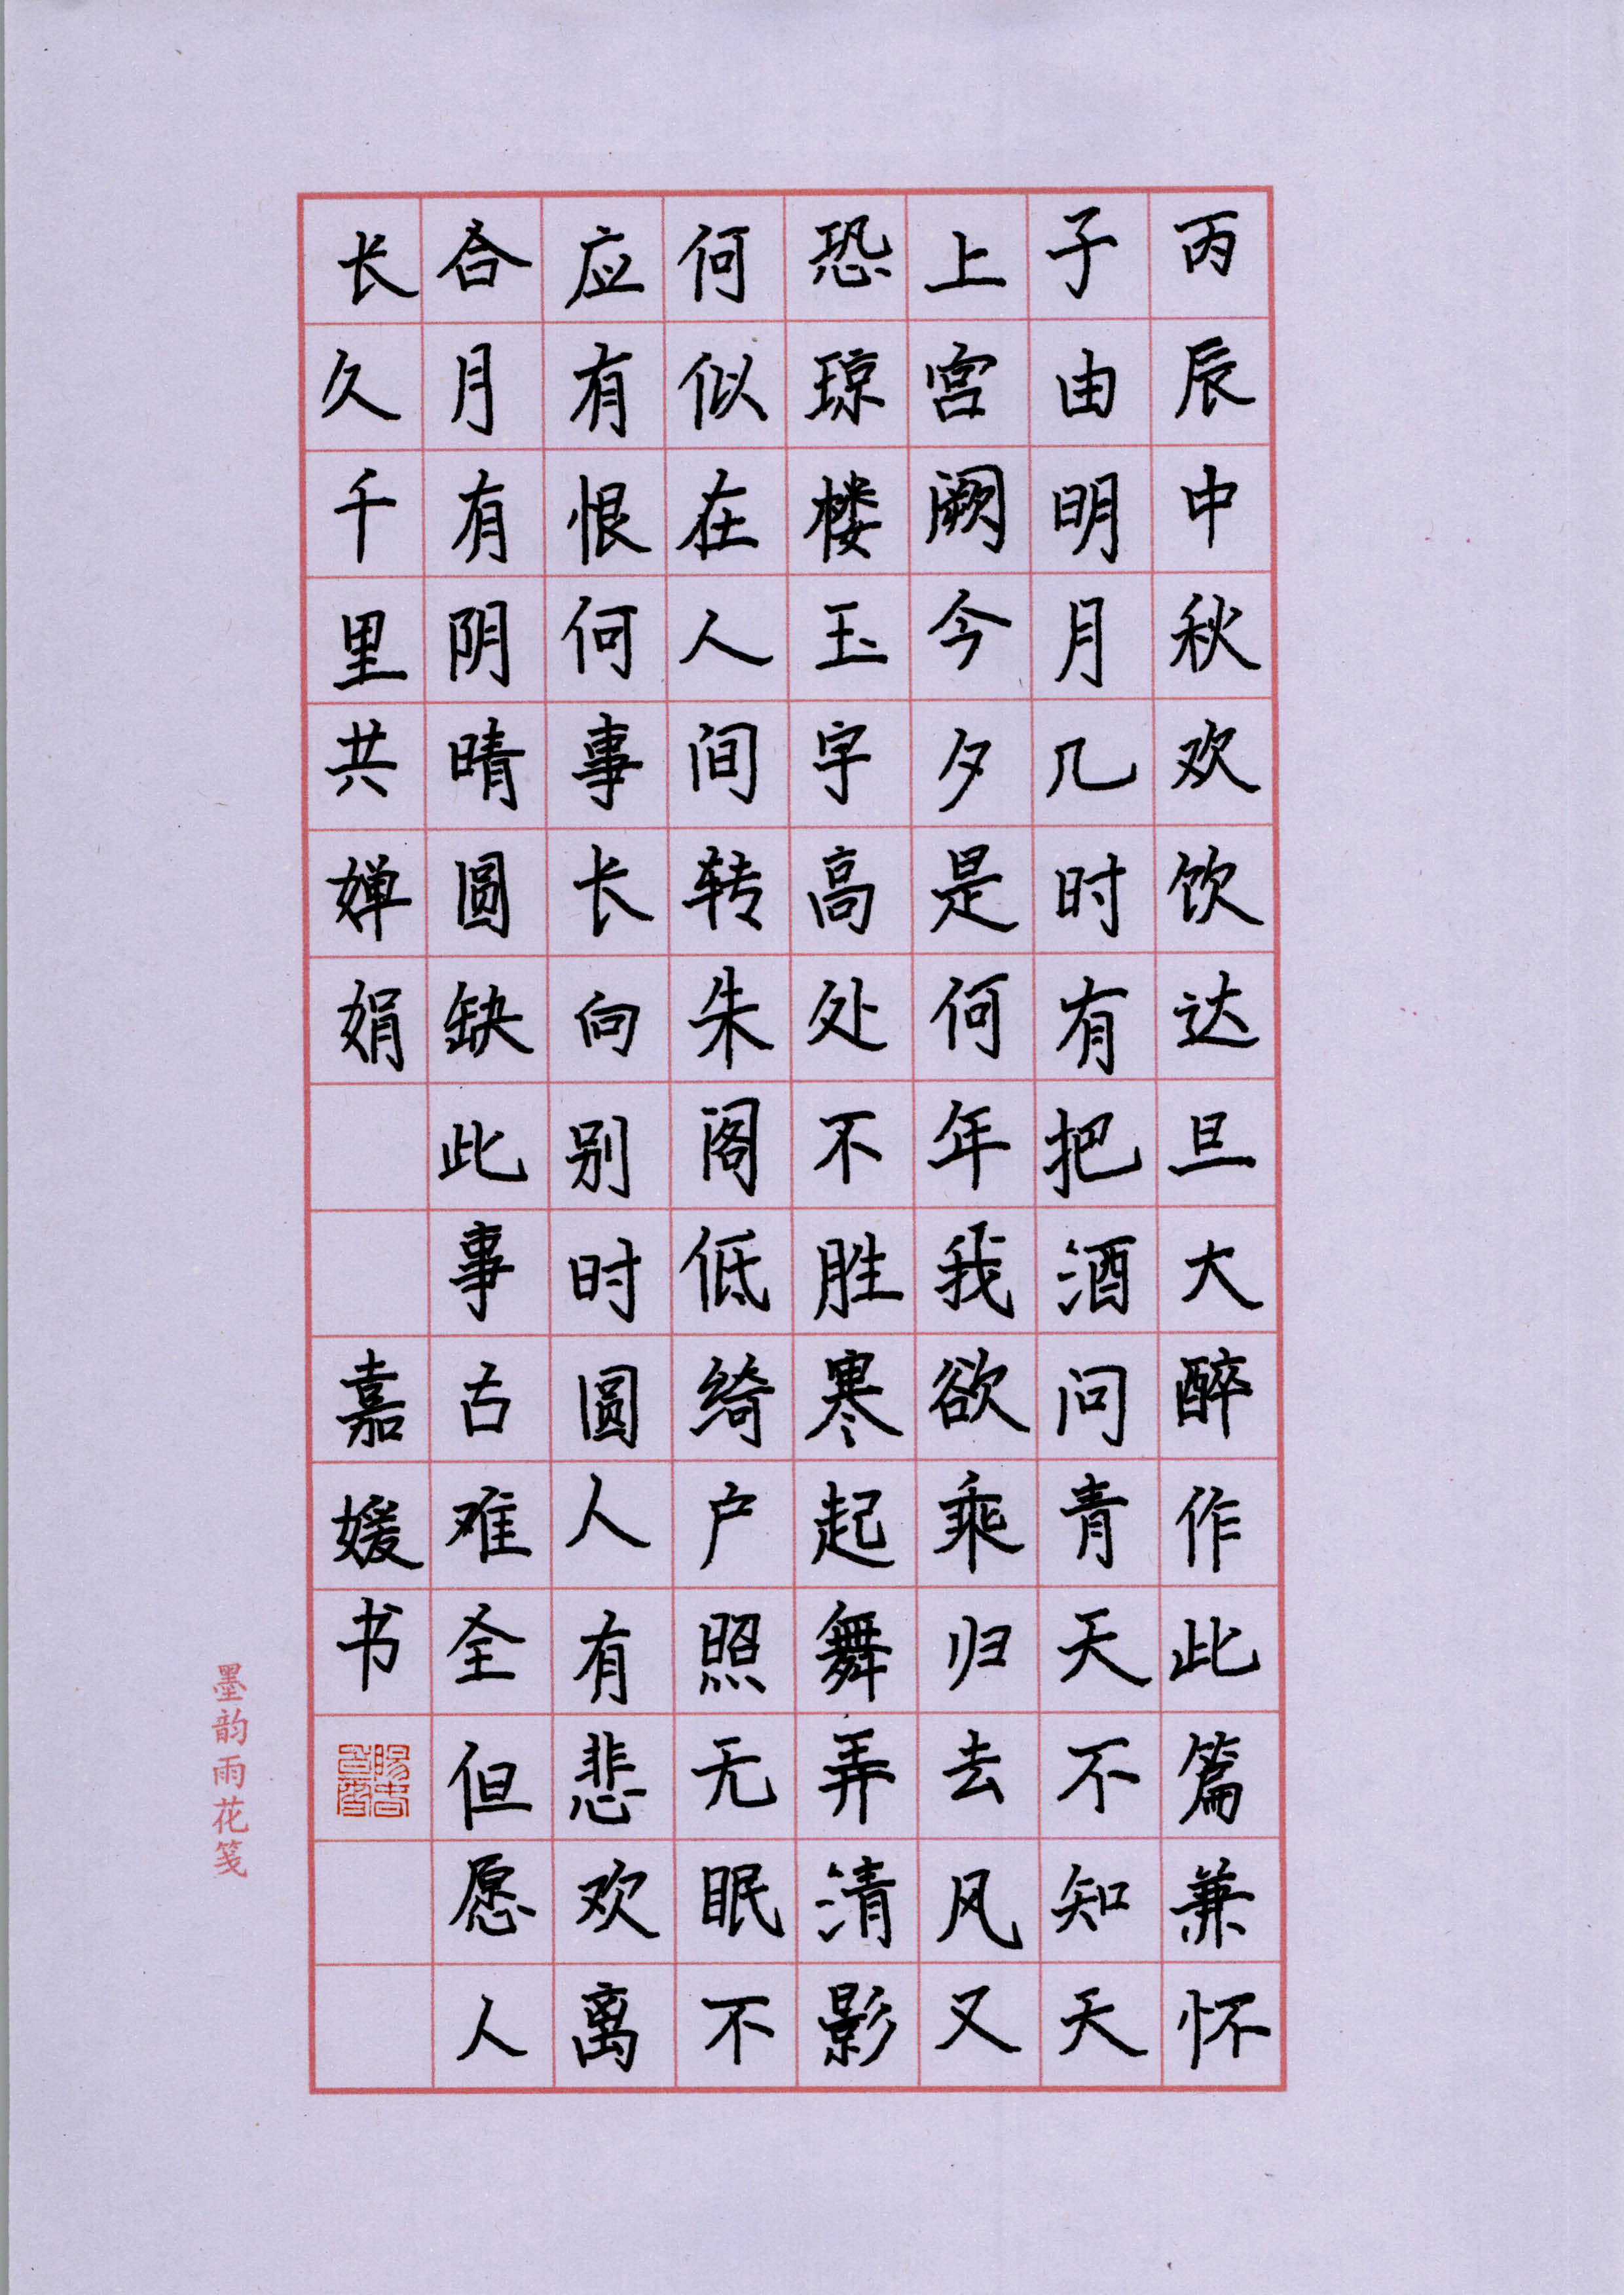 丙辰中秋欢饮达旦大醉作此篇兼怀
子由明月几时有把酒问青天不知天
上宫阙今夕是何年我欲乘归去风又
恐琼楼玉宇高处不胜寒起舞弄清影
何似在人间转朱阁低绮户照无眠不
应有恨何事长向别时圆人有悲欢离
合月有阴晴圆缺此事古难全但愿人
长久千里共婵娟
嘉媛书
墨韵雨花笺